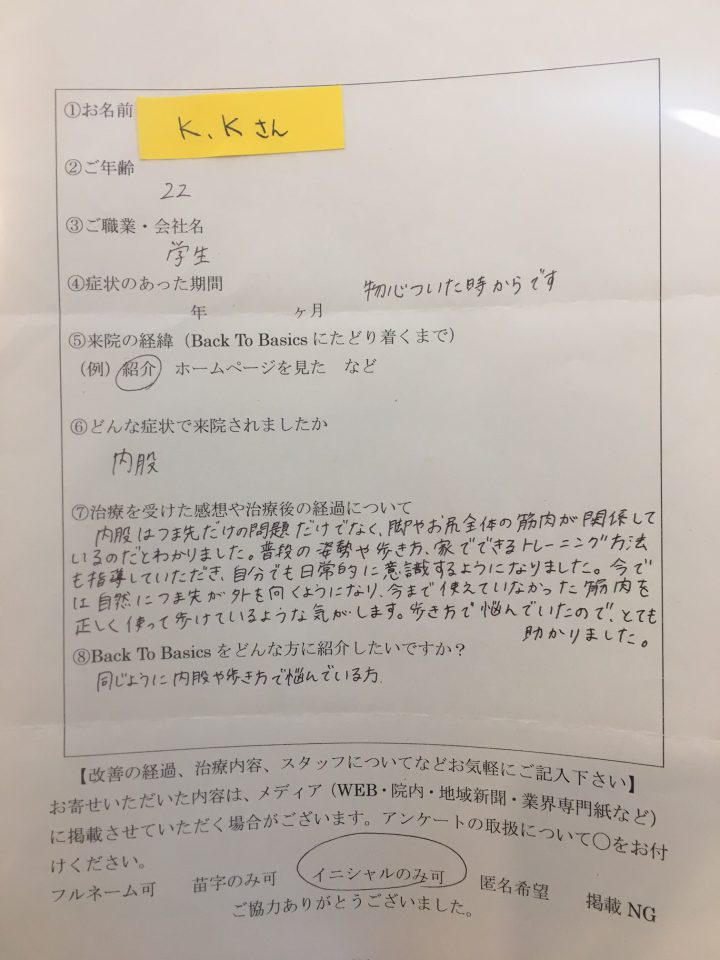 ①お名前 K.Kさん
②ご年齢
22
③ご職業・会社名
学生
④症状のあった期間 物心ついた時からです
年 ヶ月
⑤来院の経緯（Back To Basics にたどり着くまで）
（例）紹介 ホームページを見た など
⑥どんな症状で来院されましたか
内股
⑦治療を受けた感想や治療後の経過について
内股はつま先だけの問題だけでなく、脚やお尻全体の筋肉が関係して
いるのだとわかりました。普段の姿勢や歩き方、家でできるトレーニング方法
も指導していただき、自分でも日常的に意識するようになりました。今で
は自然につま先が外を向くようになり、今まで使えていなかった筋肉を
正しく使って歩けているような気がします。歩き方で悩んでいたので、とても
助かりました。
⑧Back To Basics をどんな方に紹介したいですか？
同じように内股や歩き方で悩んでいる方.
【改善の経過、治療内容、スタッフについてなどお気軽にご記入下さい】
お寄せいただいた内容は、メディア（WEB・院内・地域新聞・業界専門紙など）
に掲載させていただく場合がございます。アンケートの取扱について〇をお付
けください。
フルネーム可 苗字のみ可 イニシャルのみ可 匿名希望 掲載 NG
ご協力ありがとうございました。